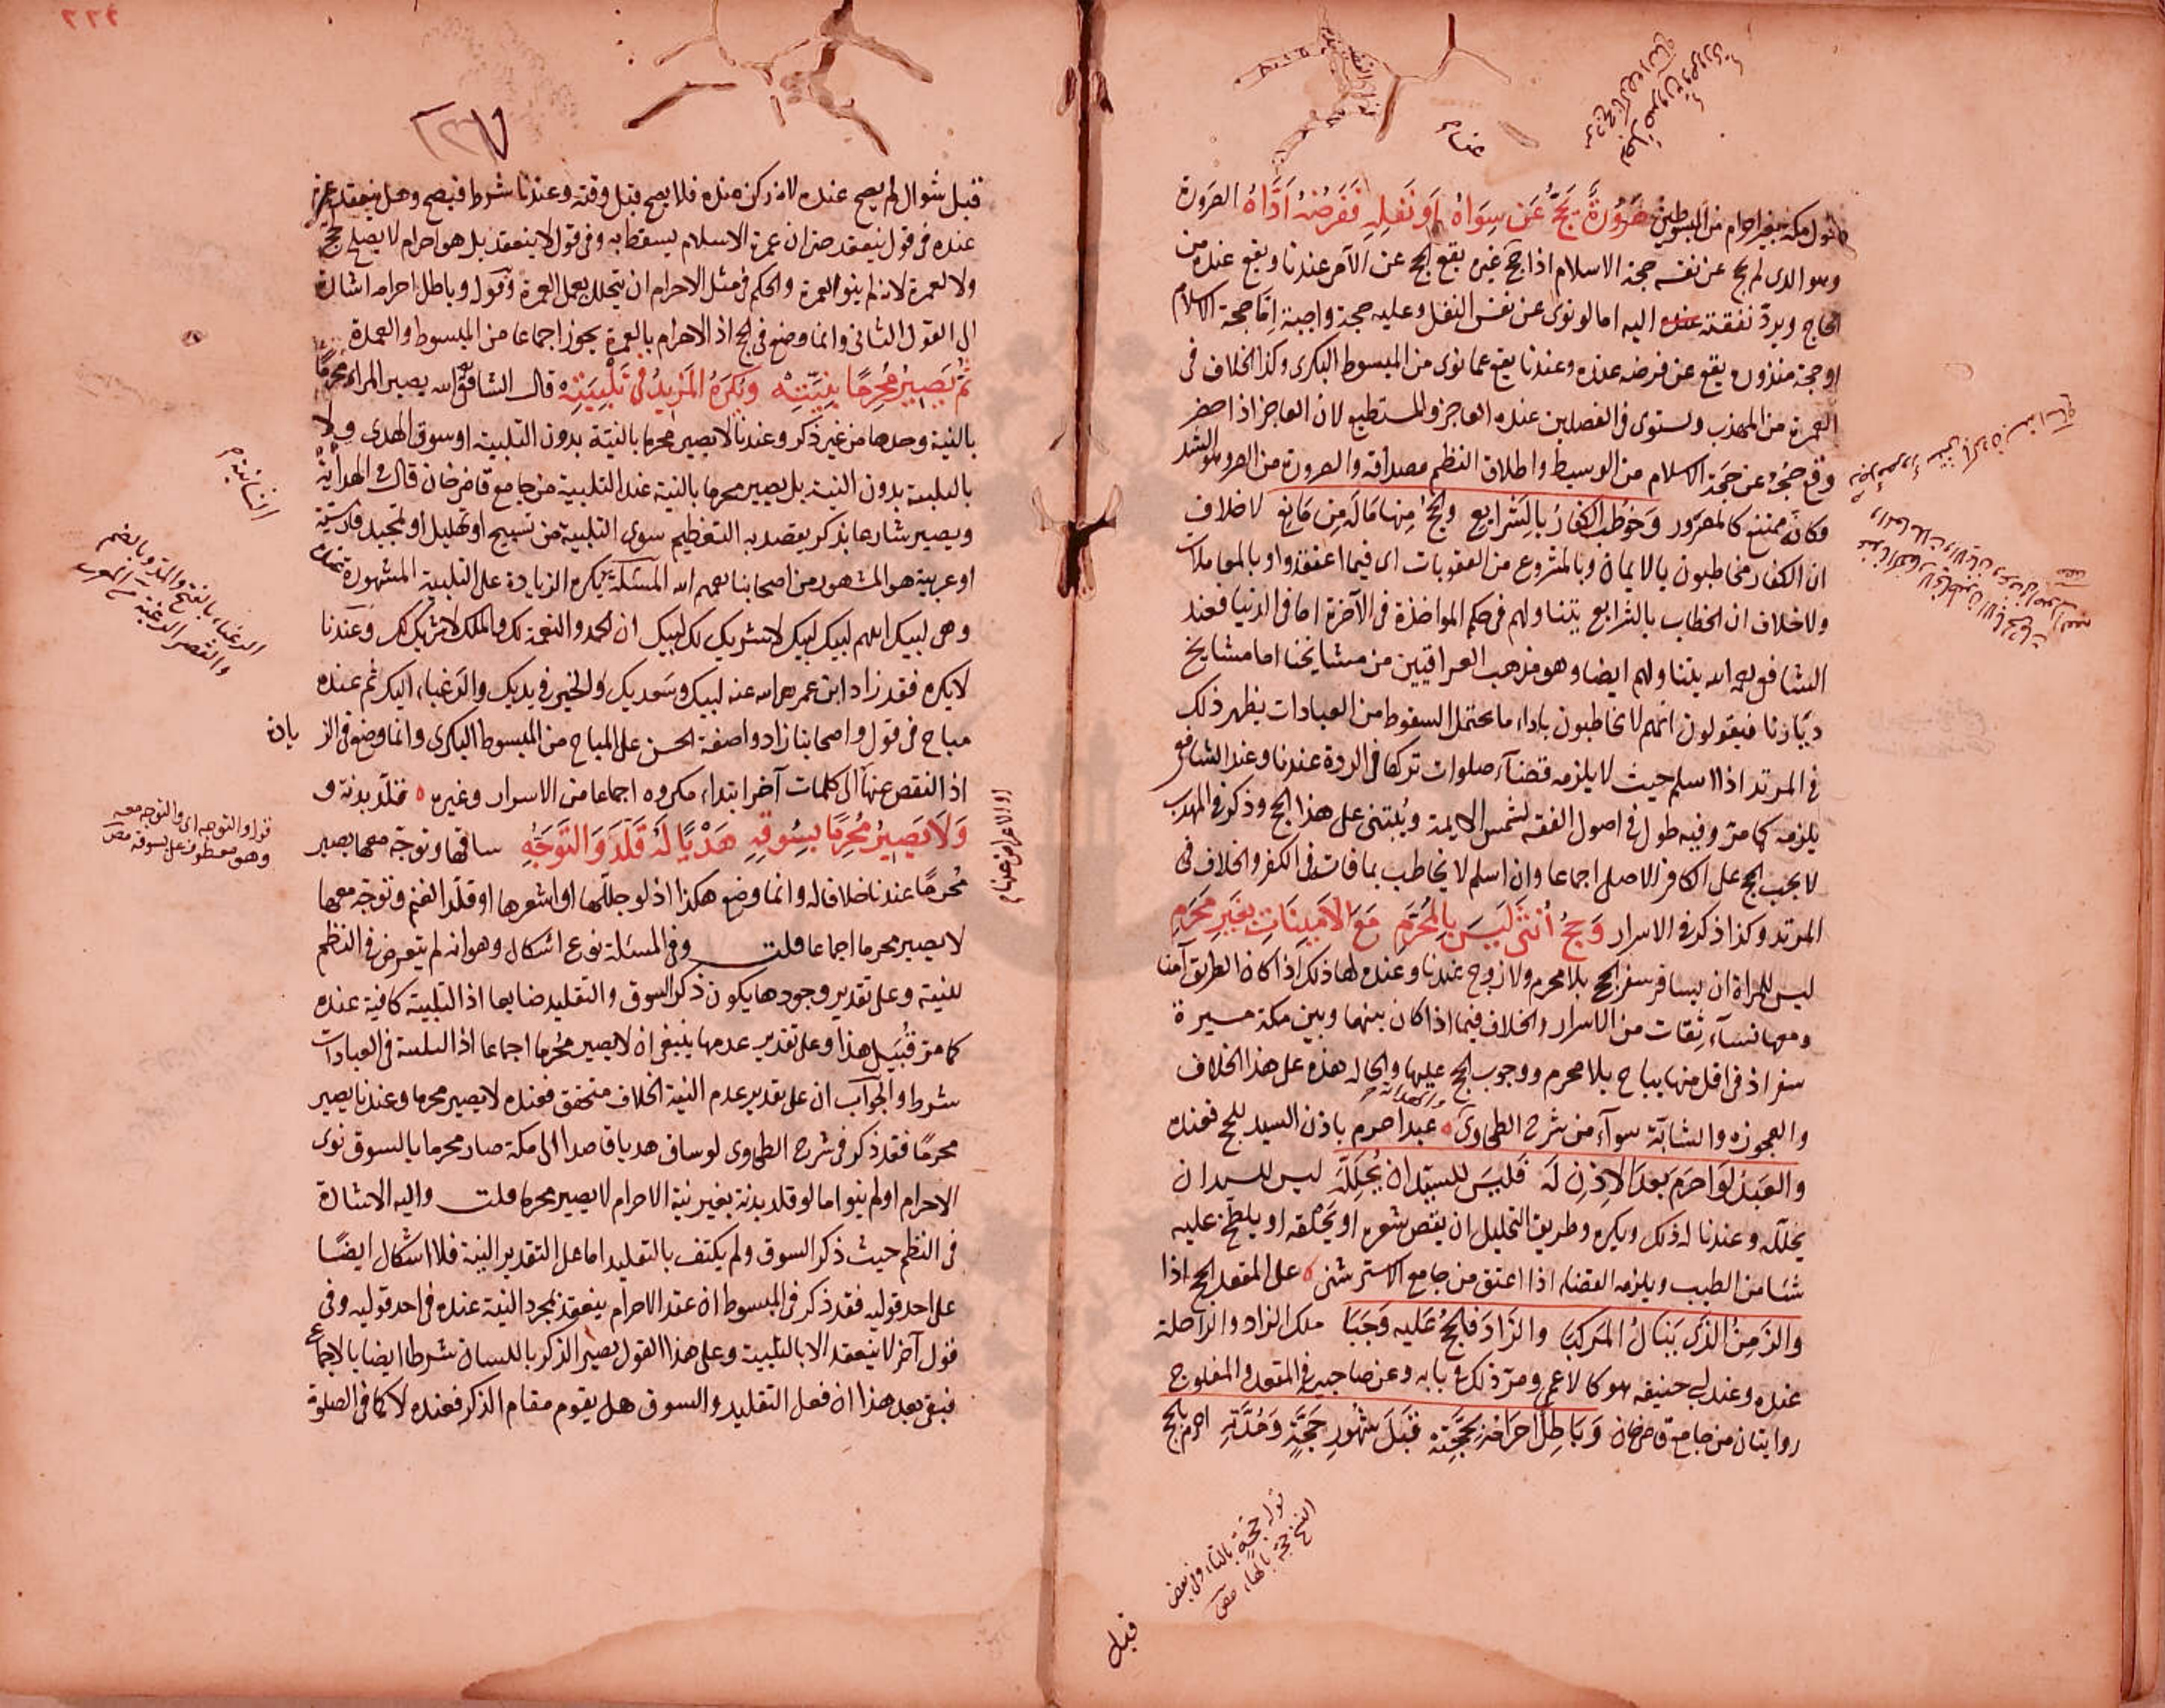 دخول مكة بغير احرام من المبسوطين صَرُورَةٌ يَحُجُّ عَن سِوَاهُ اَو نَفْلِهِ فَفَرْضُهُ اَدَّاهُ الصرورة
وهو الذى لم يحج عن نفسه حجة الاسلام اذا حج عن غيره يقع الحج عن الآمر عندنا ويقع عنده من
الحاج ويردّ نفقته اليه اما لو نوى عن نفس النفل وعليه حجة واجبة اما حجة الاسلام
او حجة منذورة يقع عن فرضه عنده وعندنا يقع عما نوى من المبسوط البكرى وكذا الخلاف فى
العمرة من المهذب ويستوى فى الفصلين عنده العاجز والمستطيع لان العاجز اذا حضر
وقع حجّه عن حجة الاسلام من الوسيط واطلاق النظم مصداقه والصرورة من الصر وهو الشد
وكانه ممتنع كالمصرور وَخُوطِبَ الكفارُ بِالشرايع والحجُّ مِنها مَا لَه مِن مَانِع لا خلاف
ان الكفار مخاطبون بالايمان وبالمشروع من العقوبات اى فيما اعتقدوا وبالمعاملات
ولا خلاف ان الخطاب بالشرايع يتناولهم فى حكم المواخذة فى الآخرة اما فى الدنيا فعند
الشافعى رحمه الله يتناولهم ايضا وهو مذهب العراقيين من مشايخنا اما مشايخ
ديارنا فيقولون انهم لا يخاطبون باداء ما يحتمل السقوط من العبادات يظهر ذلك
فى المرتد اذا اسلم حيث لا يلزمه قضاء صلوات تركها فى الردة عندنا وعند الشافعى
يلزمه كما مرّ وفيه طول فى اصول الفقه لشمس الايمة ويُبتنى على هذا الحج وذكر فى المهذب
لا يجب الحج على الكافر الاصلى اجماعا وان اسلم لا يخاطب بما فات فى الكفر والخلاف فى
المرتد وكذا ذكر فى الاسرار وَحَجُّ أُنثَى لَيسَ بِالمُحَرَّمِ مَعَ الأمِينَاتِ بِغَيرِ مَحْرَمِ
ليس للمراة ان يسافر سفر الحج بلا محرم ولا زوج عندنا وعنده لها ذلك اذا كان الطريق آمنا
ومعها نساء ثقات من الاسرار والخلاف فيما اذا كان بينها وبين مكة مسيرة
سفر اذ فى اقل منها يباح بلا محرم ووجوب الحج عليها والحالة هذه على هذا الخلاف
والعجوزة والشابّة سوآء من شرح الطحاوى عبد احرم باذن السيد للحج فعنده
والعبدُ لَو اَحرَمَ بَعدَ الاِذنِ لَه فَلَيسَ للسيّد ان يُحَلِّلَه ليس للسيد ان
يحلله وعندنا له ذلك ويكره وطريق التحليل ان يقص شعره او يَحْلقه او يلطخ عليه
شئا من الطيب ويلزمه القضاء اذا اعتق من جامع الاسترشنى على المقعد الحج اذا
والزَمِنُ الذى يَنَالُ المَركَبَ والزادَ فالحجُّ عَليه وَجَبَا ملك الزاد والراحلة
عنده وعند ابى حنيفه هو كالاعمى ومرّ ذلك فى بابه وعن صاحبيه فى المقعد والمفلوج
روايتان من جامع قاضى خان وَبَاطِلٌ اِحرَامُهُ بِحَجَّتِه قبَلَ شُهُورِ حَجَّةٍ وَمُدَّتِه احرم بالحج
قوله حَجَّةٍ بالتاء وفى بعض
النسخ حجّه بالهاء مص
قبل
قبل شوال لم يصح عنده لانه ركن عنده فلا يصح قبل وقته وعندنا شرط فيصح وهل ينعقد عمرة
عنده فى قول ينعقد حتى ان عمرة الاسلام يسقط به وفى قول لا ينعقد بل هو احرام لا يصلح لحج
ولا لعمرة لانه لم ينو العمرة والحكم فى مثل الاحرام ان يتحلل بعمل العمرة وقوله وباطل احرامه اشارة
الى القول الثانى وانما وضع فى الحج اذ الاحرام بالعمرة يجوز اجماعا من المبسوط والعمدة
ثُمَّ يَصِيرُ مُحْرِمًا بِنِيَّتِهْ وَيُكرَهُ المَزِيدُ فى تَلْبِيَتِهْ قال الشافعى رحمه الله يصير المراء محرمًا
بالنية وحدها من غير ذكر وعندنا لا يصير محرما بالنيّة بدون التلبية او سوق الهدى ولا
بالتلبية بدون النية بل يصير محرما بالنية عند التلبية من جامع قاضى خان قال فى الهداية
ويصير شارعا بذكر يقصد به التعظيم سوى التلبية من تسبيح او تهليل او تمجيد فارسية
او عربية هو المشهور من اصحابنا رحمهم الله المسئلة يكره الزيادة على التلبية المشهورة
وهى لبيك اللهم لبيك لبيك لا شريك لك لبيك ان الحمد والنعمة لك والملك لا شريك لك وعندنا
لا يكره فقد زاد ابن عمر رضى الله عنه لبيك وسعديك والخير فى يديك والرَغباء اليك ثم عنده
مباح فى قول واصحابنا زادوا صفة الحسن على المباح من المبسوط البكرى وانما وضع فى الز يادة
اذ النقص عنها الى كلمات آخر ابتداء مكروه اجماعا من الاسرار وغيره قلّد بدنة و
وَلَا يَصِيرُ مُحْرِمًا بِسُوقِهِ هَدْيًا لَهُ قَلَّدَ وَالتَوَجُّهِ ساقها وتوجّه معها يصير
مُحرمًا عندنا خلافا له وانما وضع هكذا اذ لو جللها او اشعرها او قلّد الغنم وتوجّه معها
لا يصير محرما اجماعا قلت وفى المسئلة نوع اشكال وهو انه لم يتعرض فى النظم
للنية وعلى تقدير وجودها يكون ذكر السوق والتقليد ضايعا اذ التلبية كافية عنده
كما مرّ قُبَيل هذا وعلى تقدير عدمها ينبغى ان لا يصير محُرما اجماعا اذ النية فى العبادات
شرط والجوآب ان على تقدير عدم النية الخلاف متحقق فعنده لا يصير محرما وعندنا يصير
محرمًا فقد ذكر فى شرح الطحاوى لو ساق هديا قاصدا الى مكة صار محرما بالسوق نوى
الاحرام او لم ينو اما لو قلد بدنة بغير نية الاحرام لا يصير محرما قلت واليه الاشارة
فى النظم حيث ذكر السوق ولم يكتف بالتقليد اما على التقدير النية فلا اشكال ايضًا
على احد قوليه فقد ذكر فى المبسوط ان عقد الاحرام ينعقد بمجرد النية عنده فى احد قوليه وفى
قول آخر لا ينعقد الا بالتلبية وعلى هذا القول تصير الذكر باللسان شرطا ايضا بالاجماع
فبقى بعد هذا ان فعل التقليد والسوق هل يقوم مقام الذكر فعنده لا كما فى الصلوة
الرغباء بالفتح والمد وبالضم
والقصر الرغبة مع المغرب
قوله والتوجه اى والتوجه معه
وهو معطوف على بسوقه مص